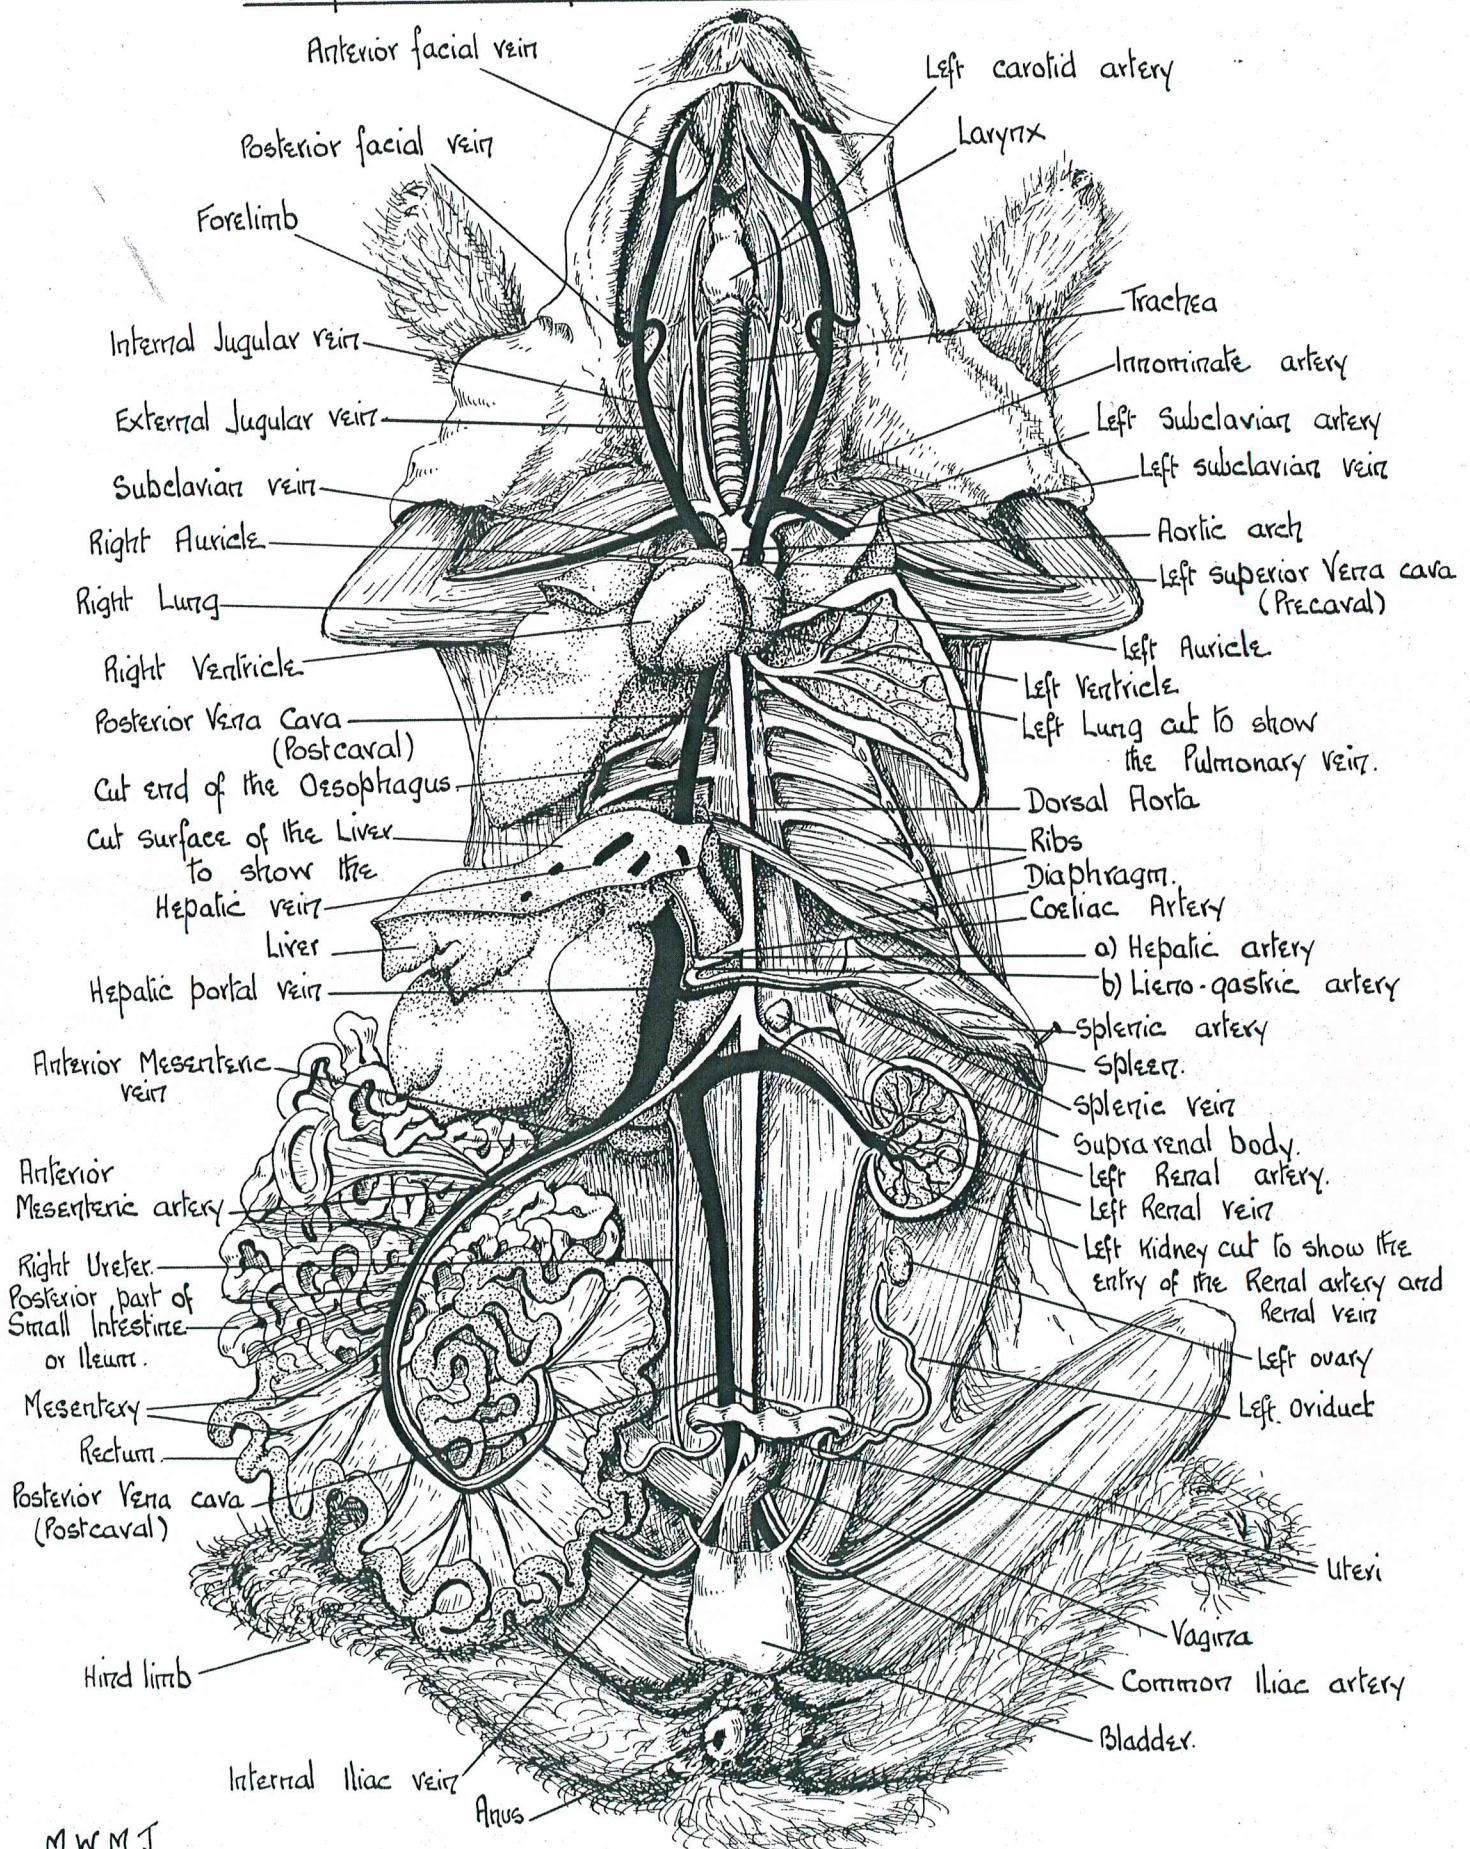 Anterior facial vein
Posterior facial vein
Forelimb
Internal Jugular vein
External Jugular vein
Subclavian vein
Right Auricle
Right Lung
Right Ventricle
Posterior Vena Cava
(Postcaval)
Cut end of the Oesophagus
Cut surface of the Liver
to show the
Hepatic vein
Liver
Hepatic portal vein
Anterior Mesenteric
vein
Anterior
Mesenteric artery
Right Ureter.
Posterior part of
Small Intestine
or Ileum.
Mesentery
Rectum
Posterior Vena cava
(Postcaval)
Hind limb
Internal Iliac vein
Anus
M W M J
Left carotid artery
Larynx
Trachea
Innominate artery
Left Subclavian artery
Left subclavian vein
Aortic arch
Left superior Vena cava
(Precaval)
Left Auricle
Left Ventricle
Left Lung cut to show
the Pulmonary vein.
Dorsal Aorta
Ribs
Diaphragm.
Coeliac Artery
a) Hepatic artery
b) Lieno-gastric artery
Splenic artery
Spleen.
Splenic vein
Supra renal body.
Left Renal artery.
Left Renal vein
Left Kidney cut to show the
entry of the Renal artery and
Renal vein
Left ovary
Left oviduct
Uteri
Vagina
Common Iliac artery
Bladder.